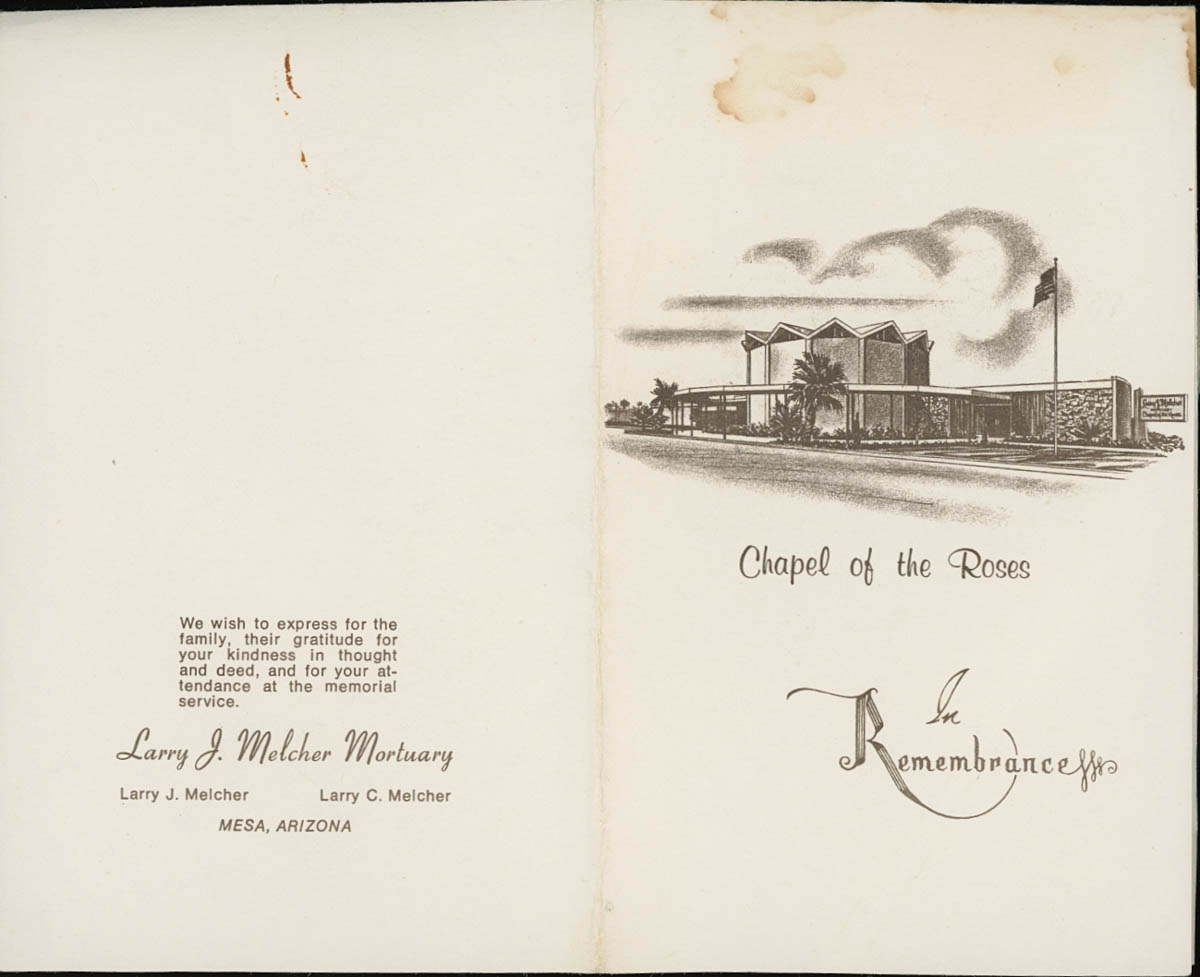 We wish to express for the
family, their gratitude for
your kindness in thought
and deed, and for your at-
tendance at the memorial
service.
Larry J. Melcher Mortuary
Larry J. Melcher Larry C. Melcher
MESA, ARIZONA
Chapel of the Roses
In
Remembrance